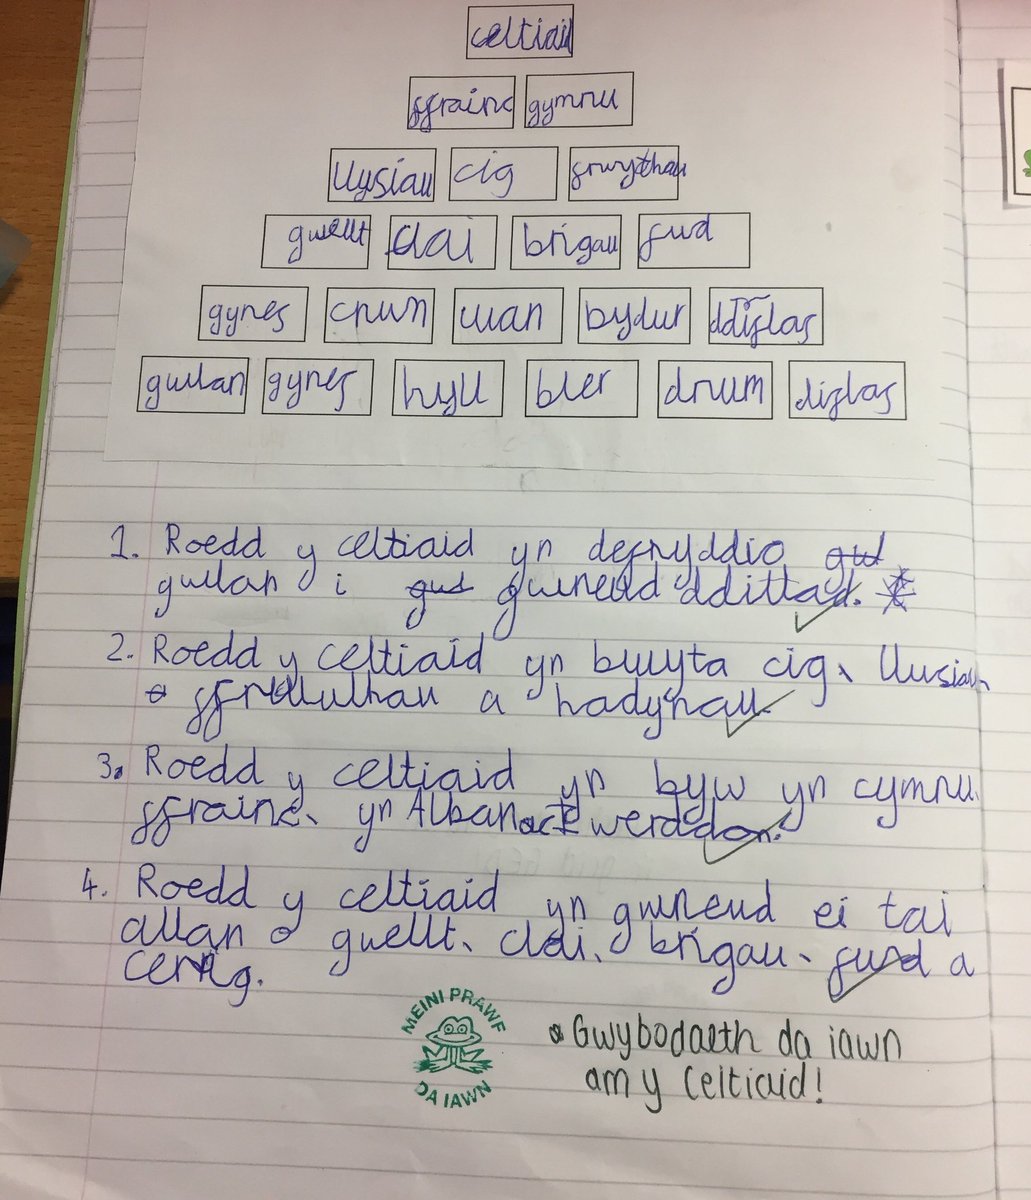 celtiaid
ffrainc gymru
llysiau cig frwythau
gwellt clai brigau fwd
gynes crwn wan bydur ddiflas
gwlan gynes hyll bler drwm diflas
1. Roedd y celtiaid yn defnyddio gwd
gwlan i gwd gwneud ddittad.
2. Roedd y celtiaid yn bwyta cig, llusiau,
o ffrwwthau a hadynau.
3. Roedd y celtiaid yn byw yn cymru,
ffrainc, yn Alban werddon.
4. Roedd y celtiaid yn gwneud ei tai
allan o gwellt, clai, brigau, fwd a
cerrig.
MEINI PRAWF
DA IAWN
Gwybodaeth da iawn
am y Celtiaid!